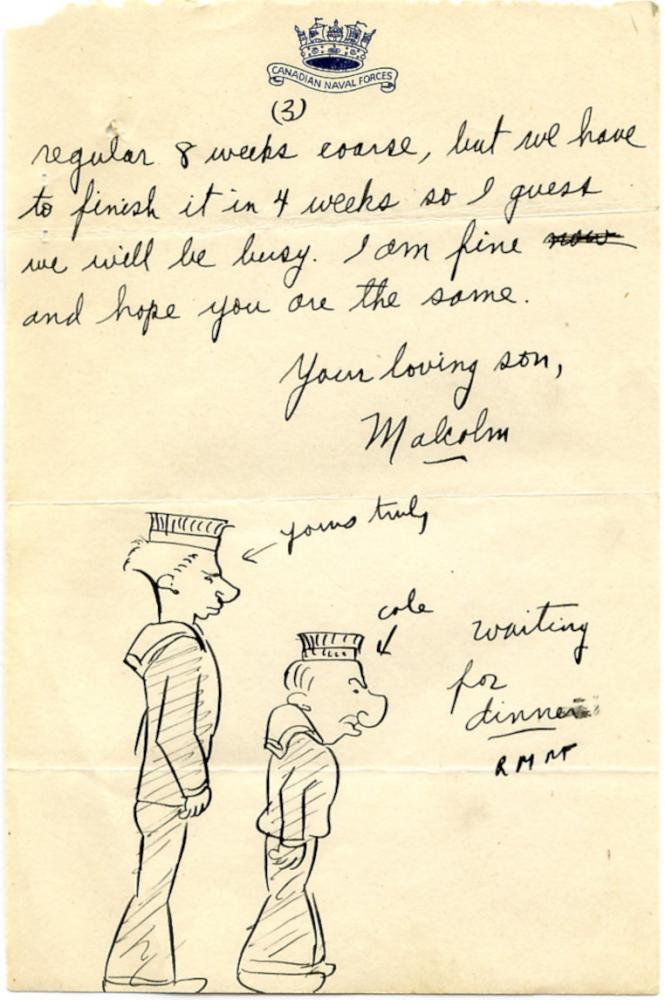 CANADIAN NAVAL FORCES
(3)
regular 8 weeks coarse, but we have
to finish it in 4 weeks so I guess
we will be busy. I am fine now
and hope you are the same.
Your loving son,
Malcolm
yours truly
cole
waiting
for
dinner